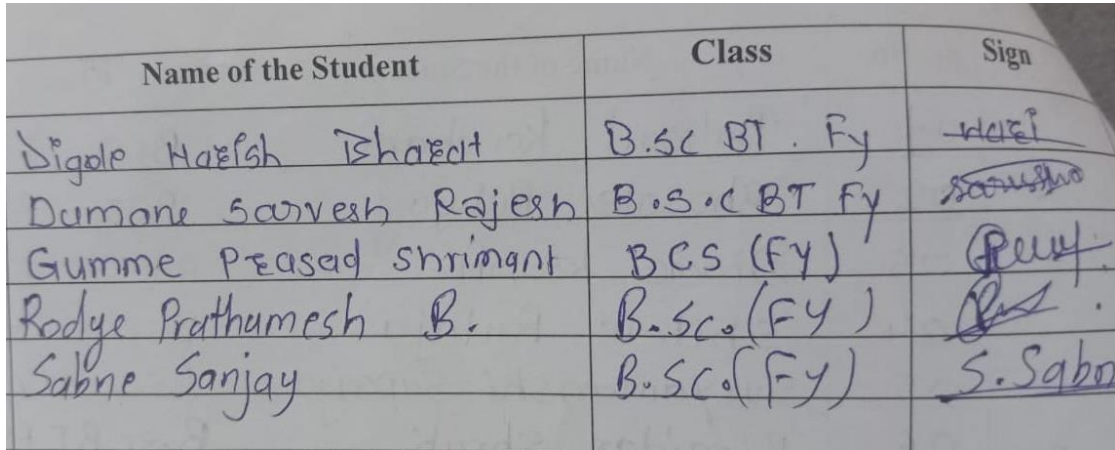 Name of the Student Class Sign
Digole Harish Bharat B.SC BT. Fy Hari
Dumane Sarvesh Rajesh B.S.C BT Fy
Gumme Prasad Shrimant BCS (FY)
Rodge Prathamesh B. B.Sc. (FY)
Sabne Sanjay B.SC. (FY) S. Sabn